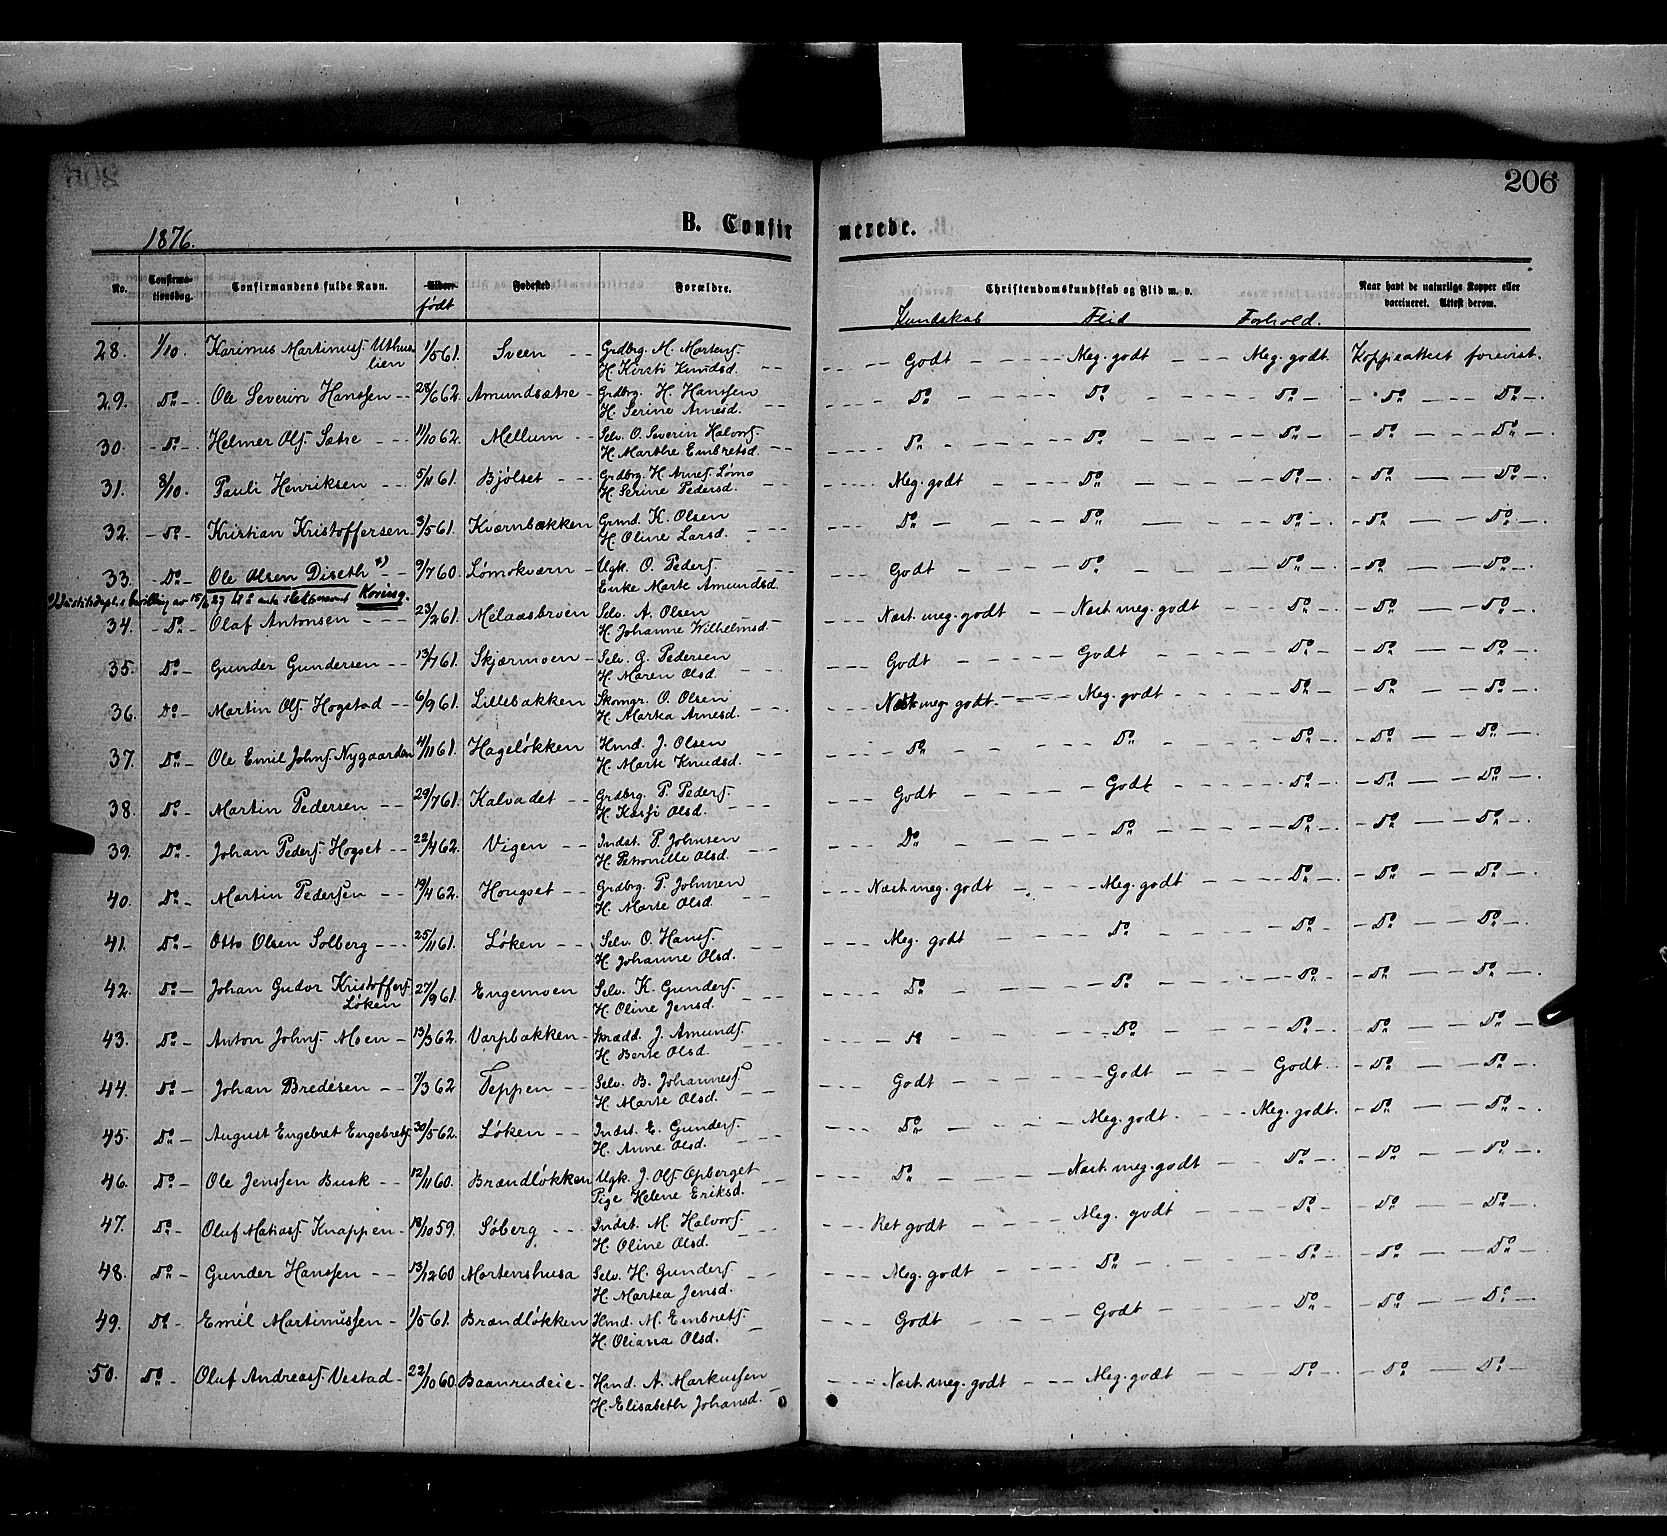 206
B. Confirmerede.
1876.
No. Confirmationsdag. Confirmandens fulde Navn. Alder. født Fødested Forældre. Christendomskundskab og Flid m. v. Naar havt de naturlige Kopper eller vaccineret. Attest derom.
Kundskab Flid Forhold.
28. 1/10. Karinus Martinusf. Uthuslien 1/5 61. Sveen Grdbrg. M. Martensf. H. Kirsti Knudsd. Godt Meg. godt Meg. godt. Koppeattest forevist.
29. Do Ole Severin Hanssen 28/6 62. Amundsætre Grdbrg. H. Hanssen H. Serine Arnesd. Do Do Do Do Do
30. Do Helmer Olsf. Sætre 11/10 62. Mellum Selv. O. Severin Halvorsf. H. Marthe Embretsd. Do Do Do Do Do
31. 8/10. Pauli Henriksen 5/11 61. Bjølset Grdbrg. H. Arnesf. Lømo H. Serine Pedersd. Meg. godt Do Do Do Do
32. Do Kristian Kristoffersen 3/5 61. Kværnbækken Grmd. K. Olsen H. Oline Larsd. Do Do Do Do Do
33. Do Ole Olsen Diseth *) 9/7 60. Lømokværn Ugk. O. Pedersf. Enke Marte Amundsd. Godt Do Do Do Do
*) Justitsdepts bevilling av 15/2 27 til å anta slektsnavnet Koving.
34. Do Olaf Antonsen 23/2 61. Melaasbroen Selv. A. Olsen H. Johanne Wilhelmsd. Næst. meg. godt Næst meg. godt Do Do Do
35. Do Gunder Gundersen 13/7 61. Skjærmoen Selv. G. Pedersen H. Maren Olsd. Godt Godt Do Do Do
36. Do Martin Olsf. Hogstad 6/9 61. Lillebakken Skomgr. O. Olsen H. Martea Arnesd. Næst meg. godt. Meg. godt Do Do Do
37. Do Ole Emil Johnsf. Nygaarden 4/11 61. Hageløkken Hmd. J. Olsen H. Marte Knudsd. Do Do Do Do Do
38. Do Martin Pedersen 29/7 61. Kalvadet Grdbrg. P. Pedersf. H. Kassi Olsd. Godt Godt Do Do Do
39. Do Johan Pedersf. Hogset 22/4 62. Vigen Indst. P. Johnsen H. Petronille Olsd. Do Do Do Do Do
40. Do Martin Pedersen 19/4 62. Hougset Grdbrg. P. Johnsen H. Marte Olsd. Næst meg. godt Meg. godt Do Do Do
41. Do Otto Olsen Solberg 25/11 61. Løken Selv. O. Hansf. H. Johanne Olsd. Meg. godt Do Do Do Do
42. Do Johan Gudor Kristoffersf. Løken 27/9 61. Engemoen Selv. K. Gundersf. H. Oline Jensd. Do Do Do Do Do
43. Do Anton Johnsf. Moen 13/3 62. Varpbakken Skrædd. J. Amundsf. H. Berte Olsd. Do Do Do Do Do
44. Do Johan Bredesen 7/3 62 Teppen Selv. B. Johannesf. H. Marte Olsd. Godt Godt Godt Do Do
45. Do August Engebret Engebretsf. 30/5 62. Løken Indst. E. Gundersf. H. Anne Olsd. Do Meg. godt. Meg. godt. Do Do
46. Do Ole Jenssen Busk 12/11 60. Brændløkken Ugk. J. Olsf. Opberget Pige Helene Eriksd. Do Næst meg. godt Do Do Do
47. Do Oluf Matiasf. Knappen 18/10 59. Søberg Indst. M. Halvorsf. H. Oline Olsd. Ret godt Meg. godt Do Do Do
48. Do Gunder Hanssen 13/12 60 Mortenshusa Selv. H. Gundersf. H. Martea Jensd. Meg. godt Do Do Do Do
49. Do Emil Martinussen 1/5 61. Brændløkken Hmd. M. Embretsf. H. Oliana Olsd. Godt Godt Do Do Do
50. Do Oluf Andreasf. Vestad 22/10 60. Baanrudeie Hmd. A. Markussen H. Elisabeth Johansd. Næst. meg. godt Meg. godt Do Do Do